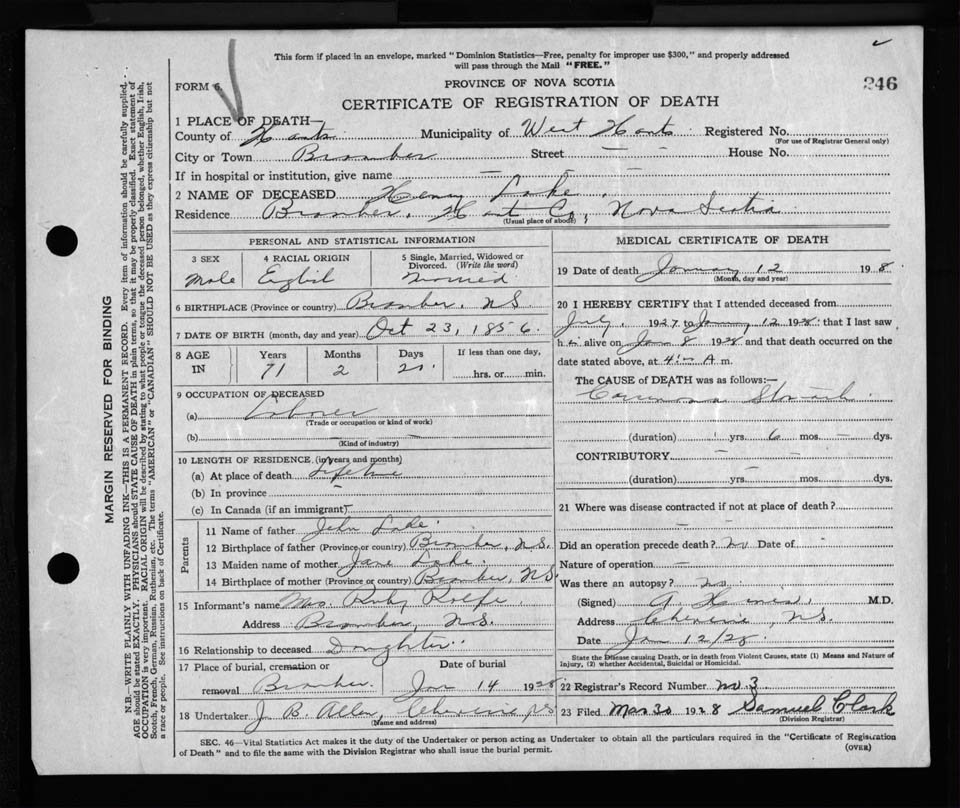 This form if placed in an envelope, marked "Dominion Statistics—Free, penalty for improper use $300," and properly addressed
will pass through the Mail "FREE."
246
FORM 6.
PROVINCE OF NOVA SCOTIA
CERTIFICATE OF REGISTRATION OF DEATH
1 PLACE OF DEATH—
County of Hants Municipality of West Hants Registered No.
(For use of Registrar General only)
City or Town Bramber Street — — House No.
If in hospital or institution, give name — —
2 NAME OF DECEASED Henry Lake.
Residence Bramber, Hants Co, Nova Scotia
(Usual place of abode)
PERSONAL AND STATISTICAL INFORMATION
3 SEX 4 RACIAL ORIGIN 5 Single, Married, Widowed or
Divorced. (Write the word)
Male English Married
6 BIRTHPLACE (Province or country) Bramber, N.S.
7 DATE OF BIRTH (month, day and year) Oct 23, 1856.
8 AGE IN Years Months Days If less than one day,
71 2 21. hrs. or min.
9 OCCUPATION OF DECEASED
(a) Laborer
(Trade or occupation or kind of work)
(b) — —
(Kind of industry)
10 LENGTH OF RESIDENCE (in years and months)
(a) At place of death Lifetime
(b) In province —
(c) In Canada (if an immigrant) —
Parents
11 Name of father John Lake.
12 Birthplace of father (Province or country) Bramber, N.S.
13 Maiden name of mother Jane Lake.
14 Birthplace of mother (Province or country) Bramber, N.S.
15 Informant's name Mrs. Ruby Rolfe,
Address Bramber, N.S.
16 Relationship to deceased Daughter.
17 Place of burial, cremation or Date of burial
removal Bramber. Jan 14 1928
18 Undertaker J. B. Allen, Cheverie N.S.
(Name and address)
MEDICAL CERTIFICATE OF DEATH
19 Date of death January 12 198.
(Month, day and year)
20 I HEREBY CERTIFY that I attended deceased from
July, 1927 to January 12 1928: that I last saw
h im alive on Jan 8 1928 and that death occurred on the
date stated above, at 4:— A m.
The CAUSE of DEATH was as follows:—
Carcinoma Stomach
(duration) yrs. 6 mos. — dys.
CONTRIBUTORY —
(duration) — yrs. mos. dys.
21 Where was disease contracted if not at place of death?
— —
Did an operation precede death? No Date of
Nature of operation —
Was there an autopsy? No
(Signed) A M.D.
Address Cheverie, N.S.
Date Jan 12/28.
State the Disease causing Death, or in death from Violent Causes, state (1) Means and Nature of
Injury, (2) whether Accidental, Suicidal or Homicidal.
22 Registrar's Record Number No 3
23 Filed Mar 30 1928 Samuel Clark
(Division Registrar)
SEC. 46—Vital Statistics Act makes it the duty of the Undertaker or person acting as Undertaker to obtain all the particulars required in the "Certificate of Registration
of Death" and to file the same with the Division Registrar who shall issue the burial permit.
(OVER)
MARGIN RESERVED FOR BINDING
N.B.—WRITE PLAINLY WITH UNFADING INK—THIS IS A PERMANENT RECORD. Every item of information should be carefully supplied.
AGE should be stated EXACTLY. PHYSICIANS should STATE CAUSE OF DEATH in plain terms, so that it may be properly classified. Exact statement of
OCCUPATION is very important. RACIAL ORIGIN will be described by stating to what people or tongue the deceased person belonged, whether English, Irish,
Scotch, French, German, Russian, Ruthenian, etc. The terms "AMERICAN" or "CANADIAN" SHOULD NOT BE USED as they express citizenship but not
a race or people. See instructions on back of Certificate.